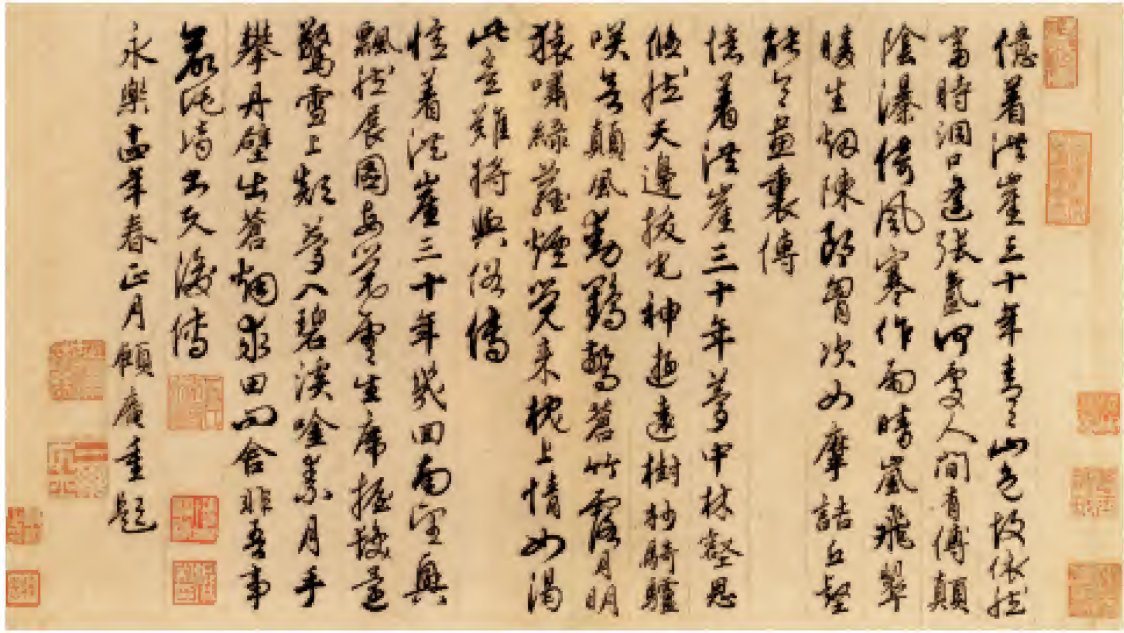 憶着洪崖三十年青〻山色故依然
當時洞口逢張氳何處人間有傅顛
陰瀑倚風寒作雨晴嵐飛翠
暖生烟陳郎胷次如摩詰丘壑
能令畫裏傳
憶着洪崖三十年夢中林壑思
悠然天邊拔宅神遊遠樹杪騎驢
咲欲顛風動鶴驚蒼竹露月明
猿嘯綠蘿煙覺来枕上情如渴
此意難將與俗傳
憶着洪崖三十年幾回南望興
飄然展圖如覺雲生席握髮還
驚雪上顛夢入碧溪唫素月手
攀丹壁出蒼烟求田問舍非吾事
傳
永樂十四年春正月頤庵重題